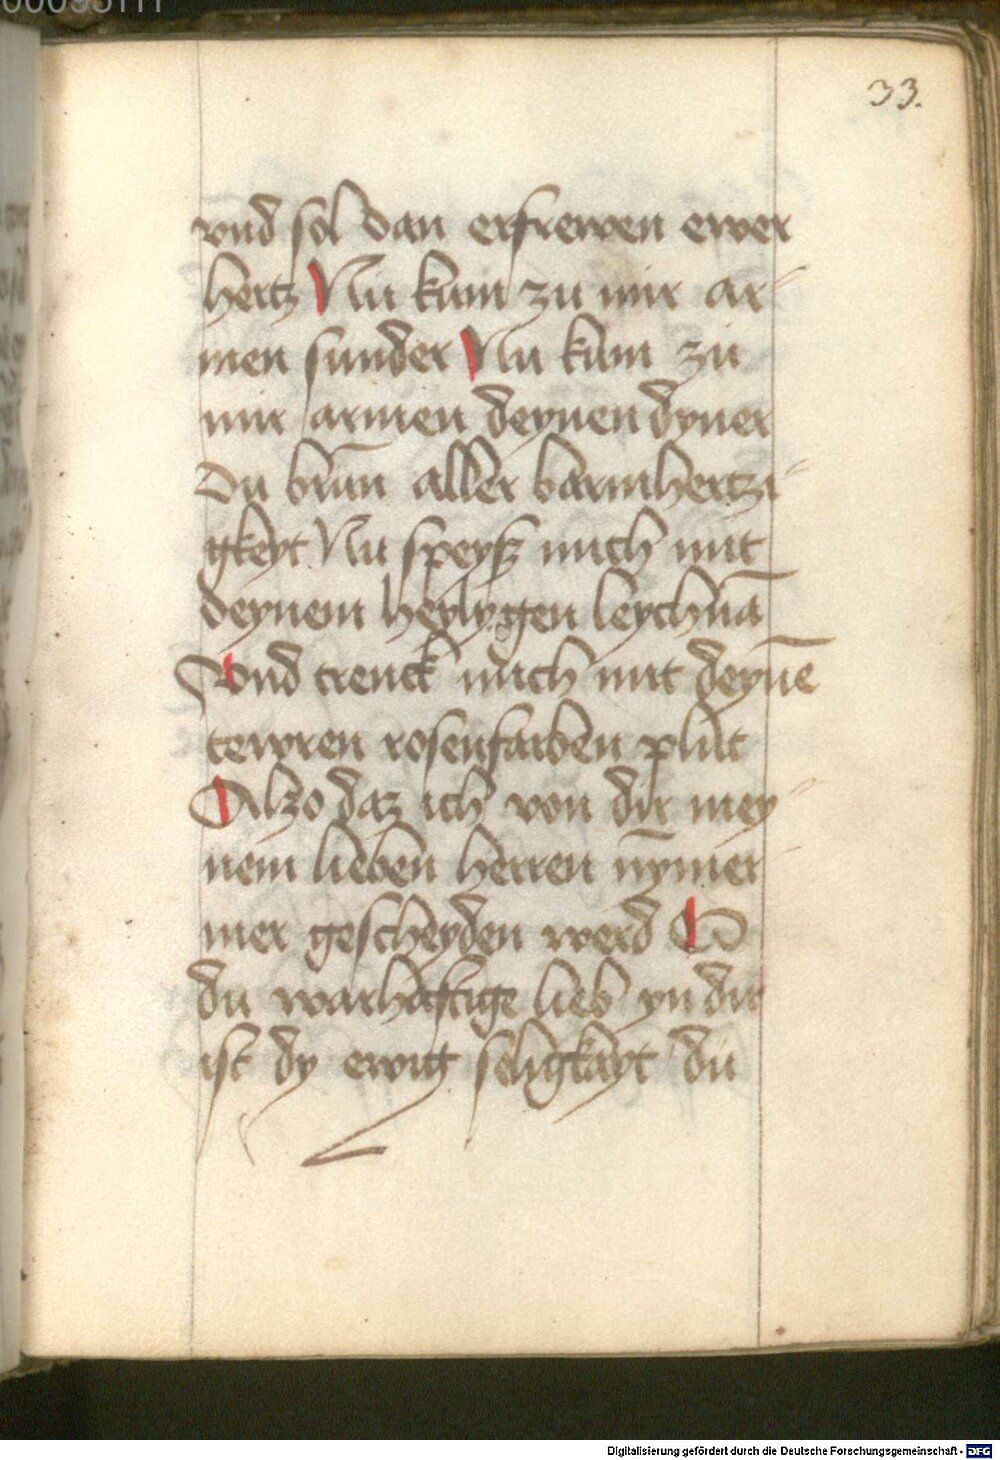 00095111
33.
vnd sol dan erfrewen ewer
hertz Nu kum zu mir ar-
men sunder Nu kum zu
mir armen deynen dyner
Du brun̄ aller barmhertzi-
gkeyt Nu speysz mich mit
deynem heylygen leychna̅
Vnd trenck mich mit deyne̅
tewren rosenfarben plut
Alzo daz ich von dir mey-
nem lieben herren nym̄er-
mer gescheyden werd O
du warhaftige lieb yn dir
ist dy ewig seligkayt du
Digitalisierung gefördert durch die Deutsche Forschungsgemeinschaft - DFG